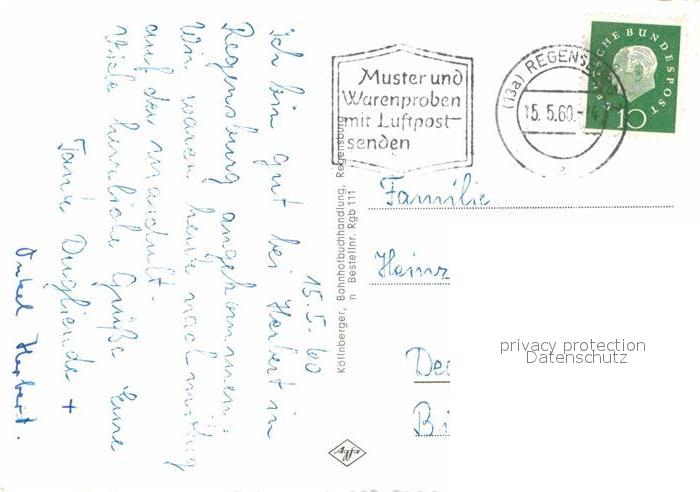 15.5.60
Ich bin gut bei Herbert in
Regensburg angekommen.
Wir waren heute nachmittag
auf der
Viele herrliche Grüße Eure
Tante +
Onkel Herbert.
Köllnberger, Bahnhofbuchhandlung, Regensburg
n Bestellnr. Rgb 111
Muster und
Warenproben
mit Luftpost-
senden
(13a) REGENSB
15.5.60.-
a
DEUTSCHE BUNDESPOST
10
Familie
Heinz
privacy protection
Datenschutz
Agfa